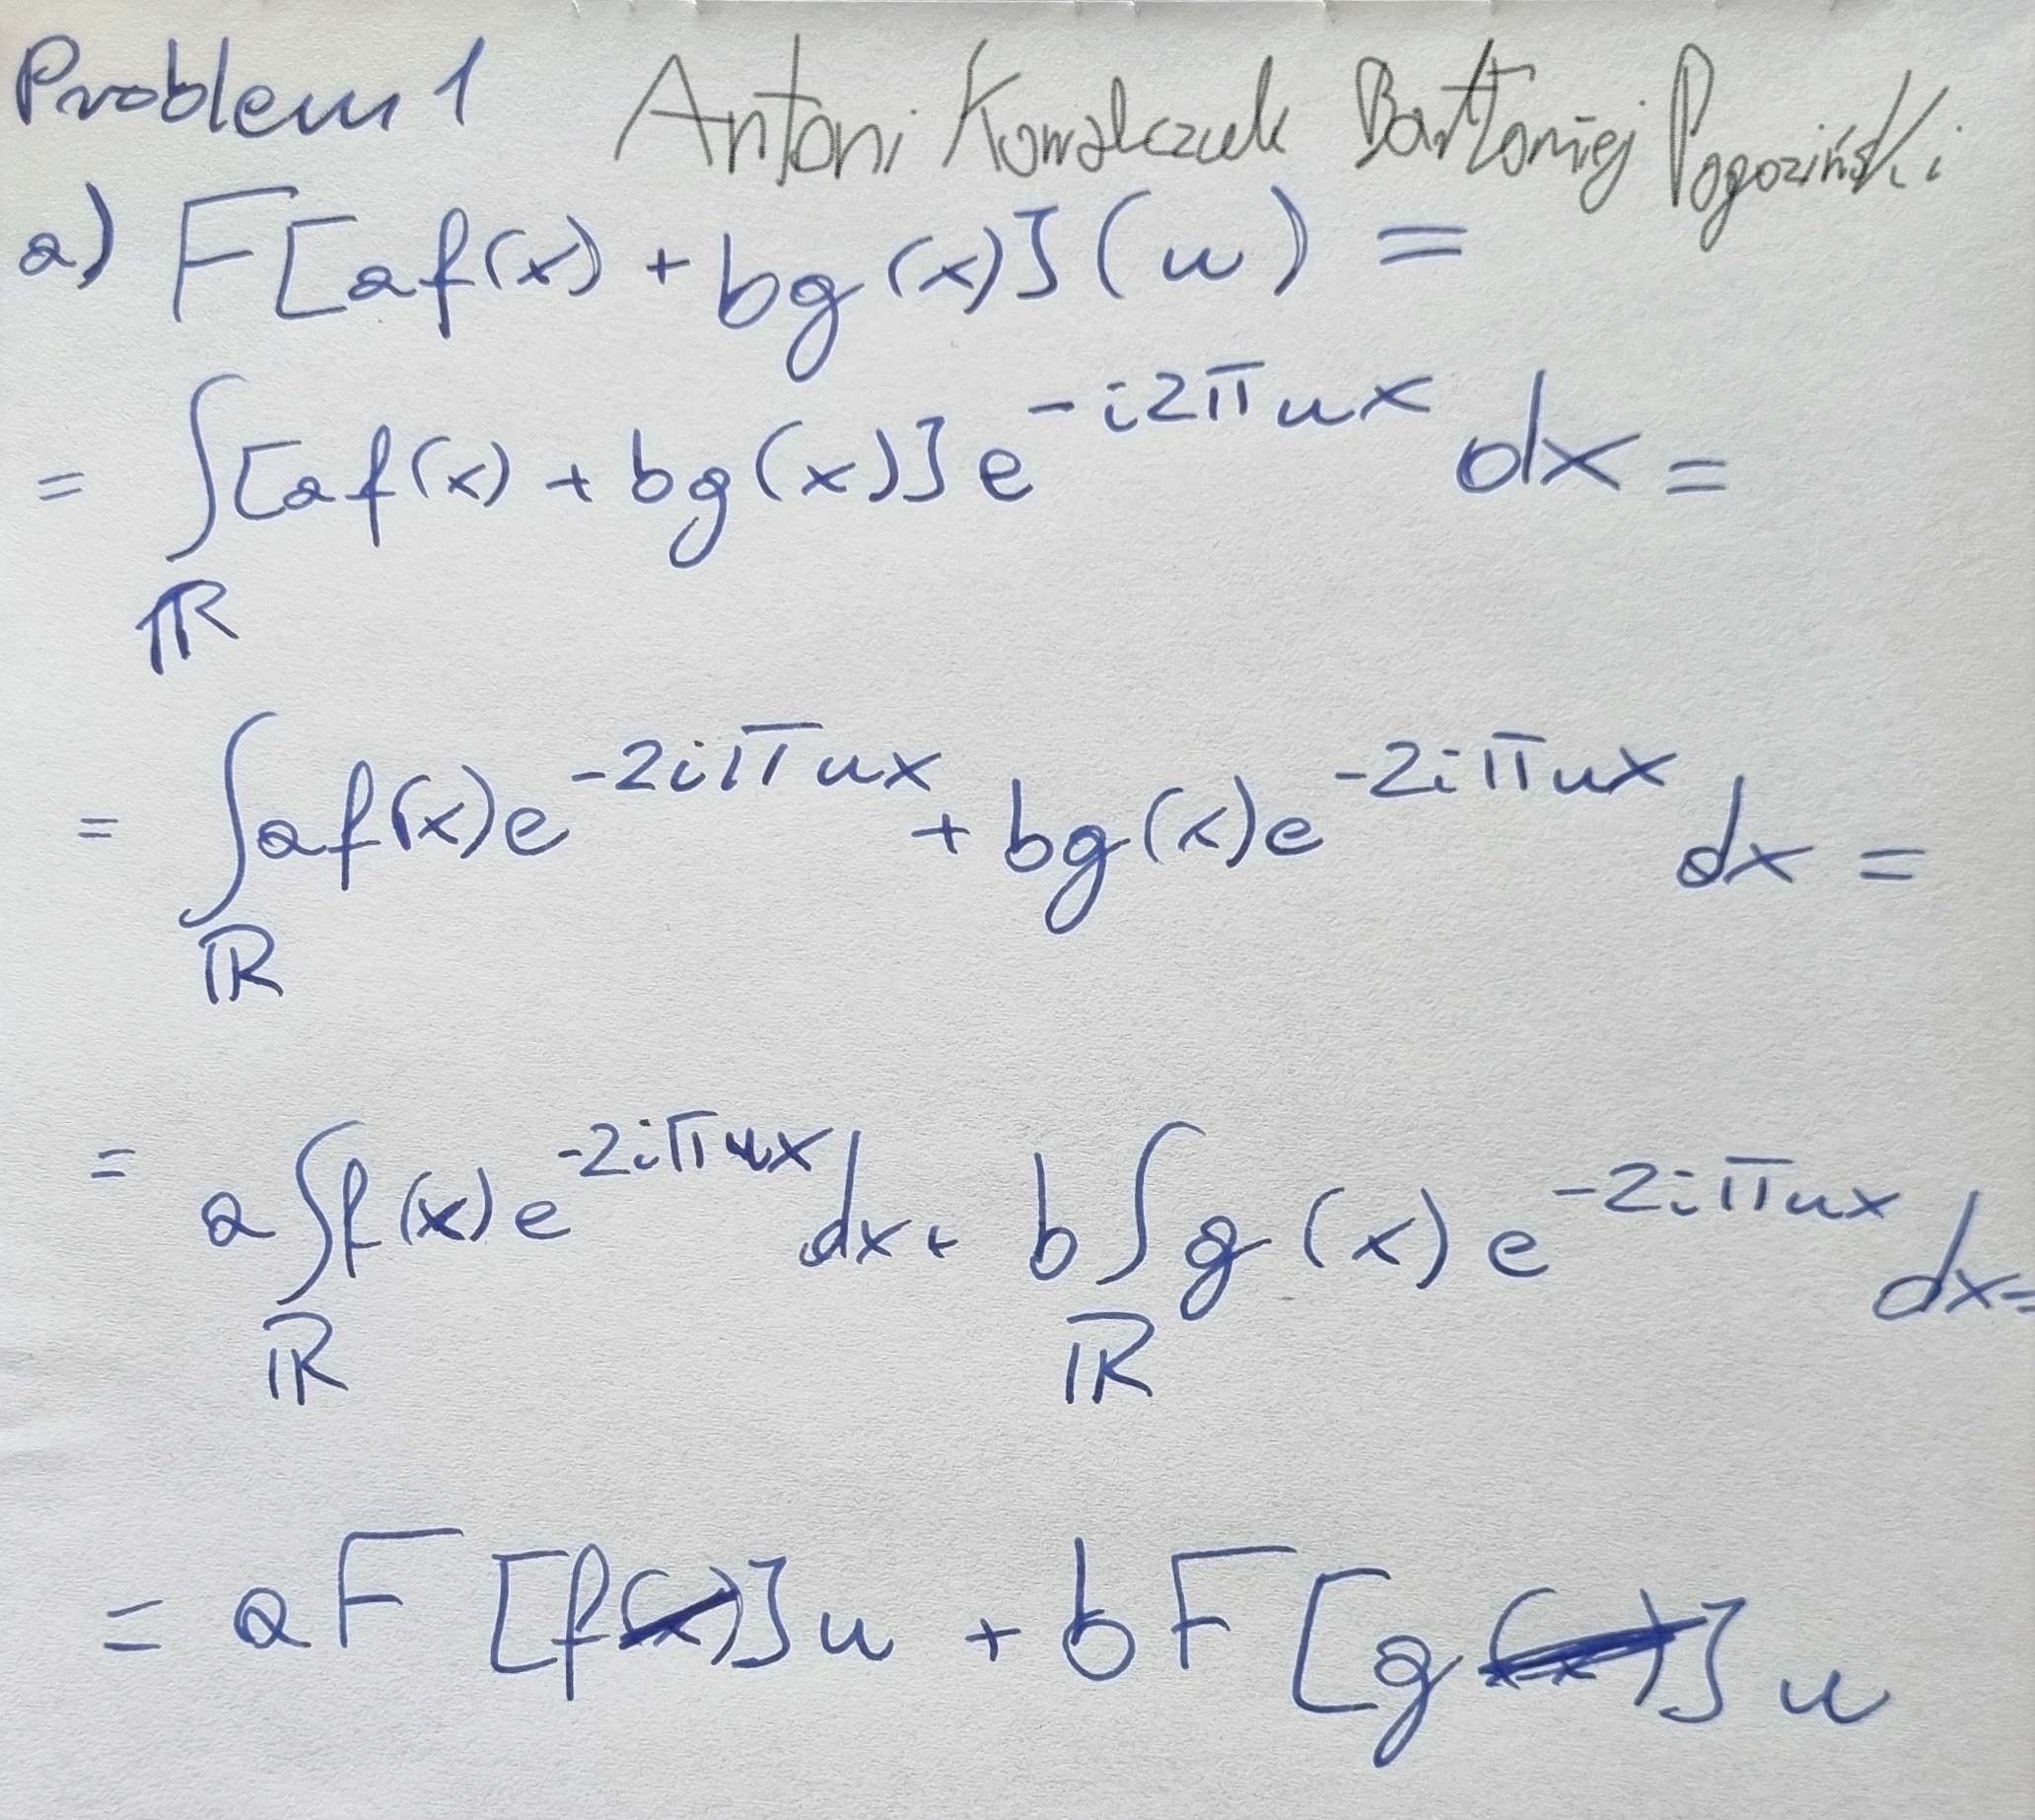 Problem 1 Antoni Kowalczuk Bartłomiej Pogoziński
a) F[af(x) + bg(x)](u) =
= ∫_ℝ [af(x) + bg(x)] e^{-i2πux} dx =
= ∫_ℝ af(x)e^{-2iπux} + bg(x)e^{-2iπux} dx =
= a∫_ℝ f(x)e^{-2iπux} dx + b∫_ℝ g(x)e^{-2iπux} dx =
= aF[f]u + bF[g]u